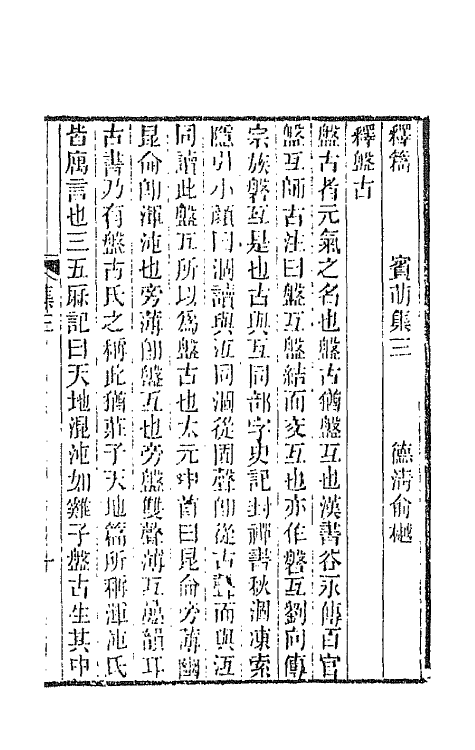 釋篇　賓萌集三　德清俞樾
釋盤古
盤古者元氣之名也盤古猶盤互也漢書谷永傳百官
盤互師古注曰盤互盤結而交互也亦作磐互劉向傳
宗族磐互是也古與互同部字史記封禪書秋涸凍索
隱引小顔曰涸讀與沍同涸從固聲卽從古聲而與沍
同讀此盤互所以爲盤古也太元中首曰昆侖旁薄幽
昆侖卽渾沌也旁薄卽盤互也旁盤雙聲薄互疊韻耳
古書乃有盤古氏之稱此猶莊子天地篇所稱渾沌氏
皆寓言也三五厤記曰天地混沌如雞子盤古生其中
集三